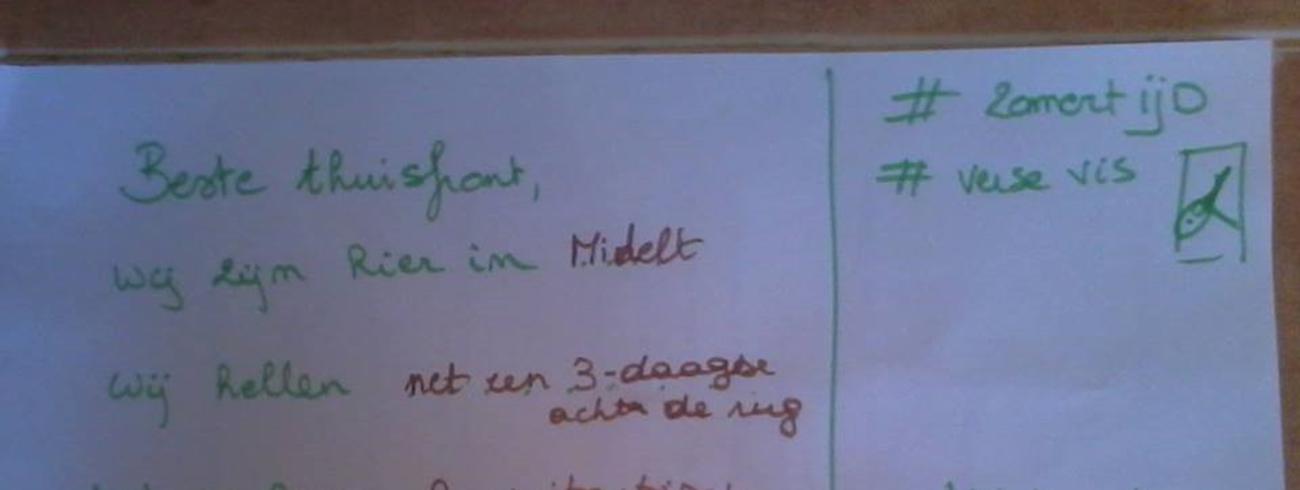 Beste thuisfront,
wij zijn hier in Midelt
wij hebben net een 3-daagse
achter de rug
# zomertijd
# verse vis